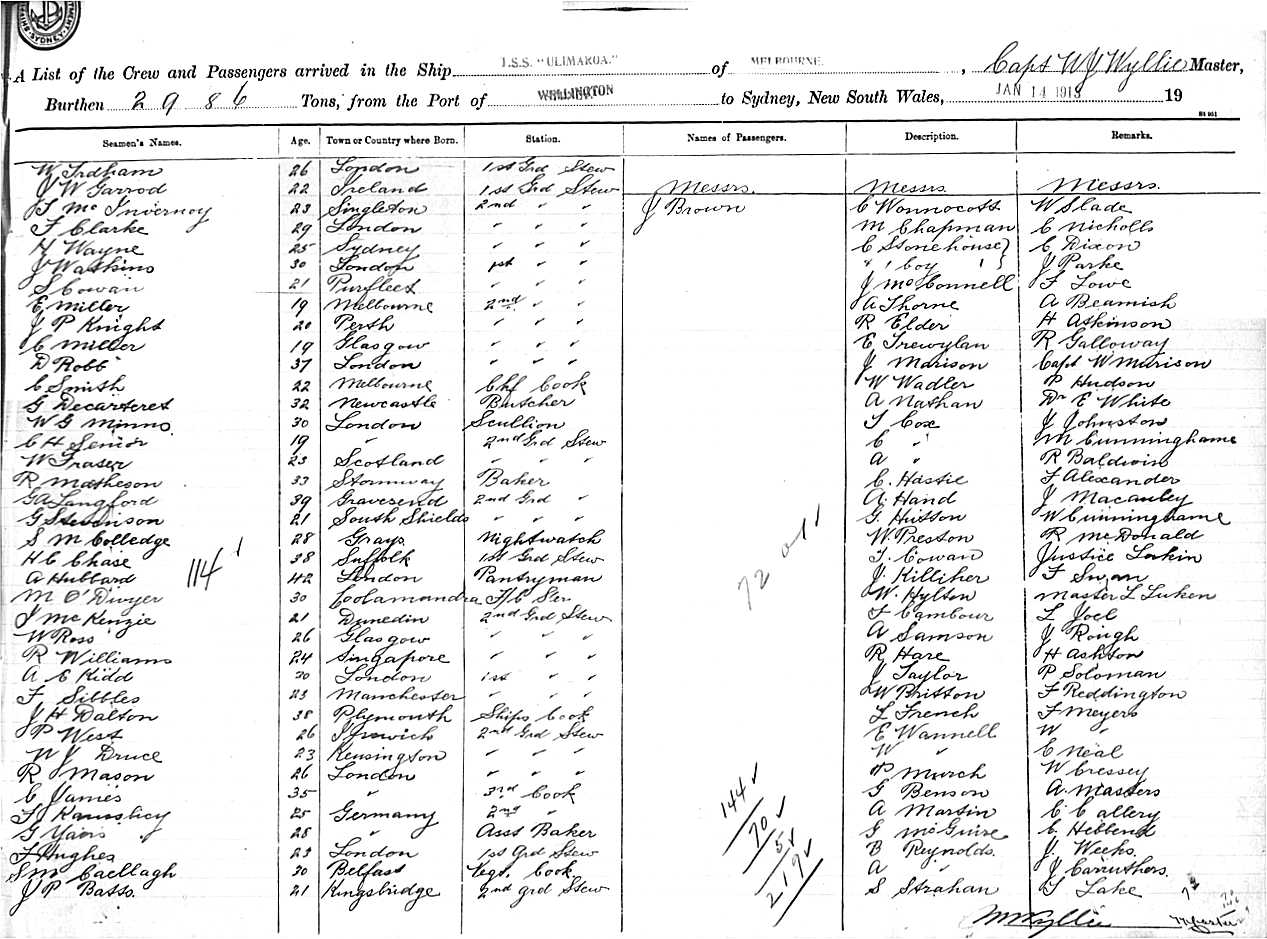 A List of the Crew and Passengers arrived in the Ship T.S.S. "ULIMAROA." of MELBOURNE. , Capt W J Wyllie Master,
Burthen 2986 Tons, from the Port of WELLINGTON to Sydney, New South Wales, JAN 14 1913 19
Seamen's Names. Age. Town or Country where Born. Station. Names of Passengers. Description. Remarks.
W Irdham 26 London 1st Grd Stew
J W Garrod 22 Ireland 1st Grd Stew Messrs. Messrs. Messrs.
23 Singleton 2nd " " J Brown C Wonnocott W Slade
F Clarke 29 London " " " M Chapman C Nicholls
H Wayne 25 Sydney " " " C Stonehouse } C Dixon
J Watkins 30 London 1st " " " " boy " } J Parke
S Cowan 21 Purfleet " " " J McConnell F Lowe
E Miller 19 Melbourne 2nd " " A Thorne A Beamish
J P Knight 20 Perth " " " R Elder H Atkinson
C Miller 19 Glasgow " " " E Trewylan R Galloway
D Robb 37 London " " " J Marison Capt W Murison
C Smith 22 Melbourne Chf Cook W Wadler P Hudson
G Decarteret 32 Newcastle Butcher A Nathan Dr E White
W G Minns 30 London Scullion T Cox J Johnston
C H Senior 19 " 2nd Grd Stew C " M Cunninghame
W Fraser 23 Scotland " " " A " R Baldwin
R Matheson 33 Stornway Baker C. Hastie F Alexander
G A Langford 39 Gravesend 2nd Grd " A. Hand J Macauley
G Stevenson 21 South Shields " " " G. Hutton W Cunninghame
S M Colledge 28 Grays Nightwatch W. Preston R McDonald
H C Chase 38 Suffolk 1st Grd Stew T. Cowan Justice Larkin
A Hubbard 42 London Pantryman J. Killiher F Swan
M O'Dwyer 30 Coolamandra W. Hylton Master L Luken
J McKenzie 21 Dunedin 2nd Grd Stew F Cambour L Joel
W Ross 26 Glasgow " " " A Samson J Rough
R Williams 24 Singapore " " " R Hare H Ashton
A C Kidd 20 London 1st " " J Taylor P Soloman
F Sibbles 23 Manchester " " " W Britton F Reddington
J H Dalton 38 Plymouth Ships Cook L French F Meyers
P West 26 Ipswich 2nd Grd Stew E Wannell W "
W J Druce 23 Kensington " " " W " C Neal
R Mason 26 London " " " P Murch W Cressey
C James 35 " 3rd Cook G Benson A. Masters
25 Germany 2nd " A Martin C Callery
G 28 " Asst Baker G McGuire C Hebbend
F Hughes 23 London 1st Grd Stew B Reynolds. J Weeks.
S McCaellagh 30 Belfast Vegt. Cook A " J Carruthers.
J P Batts. 21 Kingsbridge 2nd grd Stew S Strahan G Lake
114
72
144
70
5
219
W J Wyllie Master